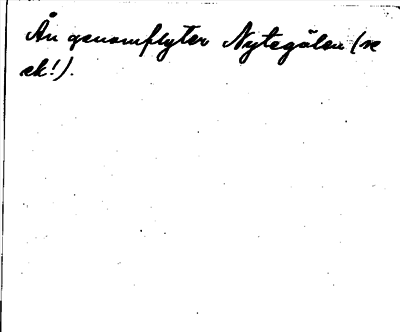 Ån genomflyter Nytegölen (se
ek!).